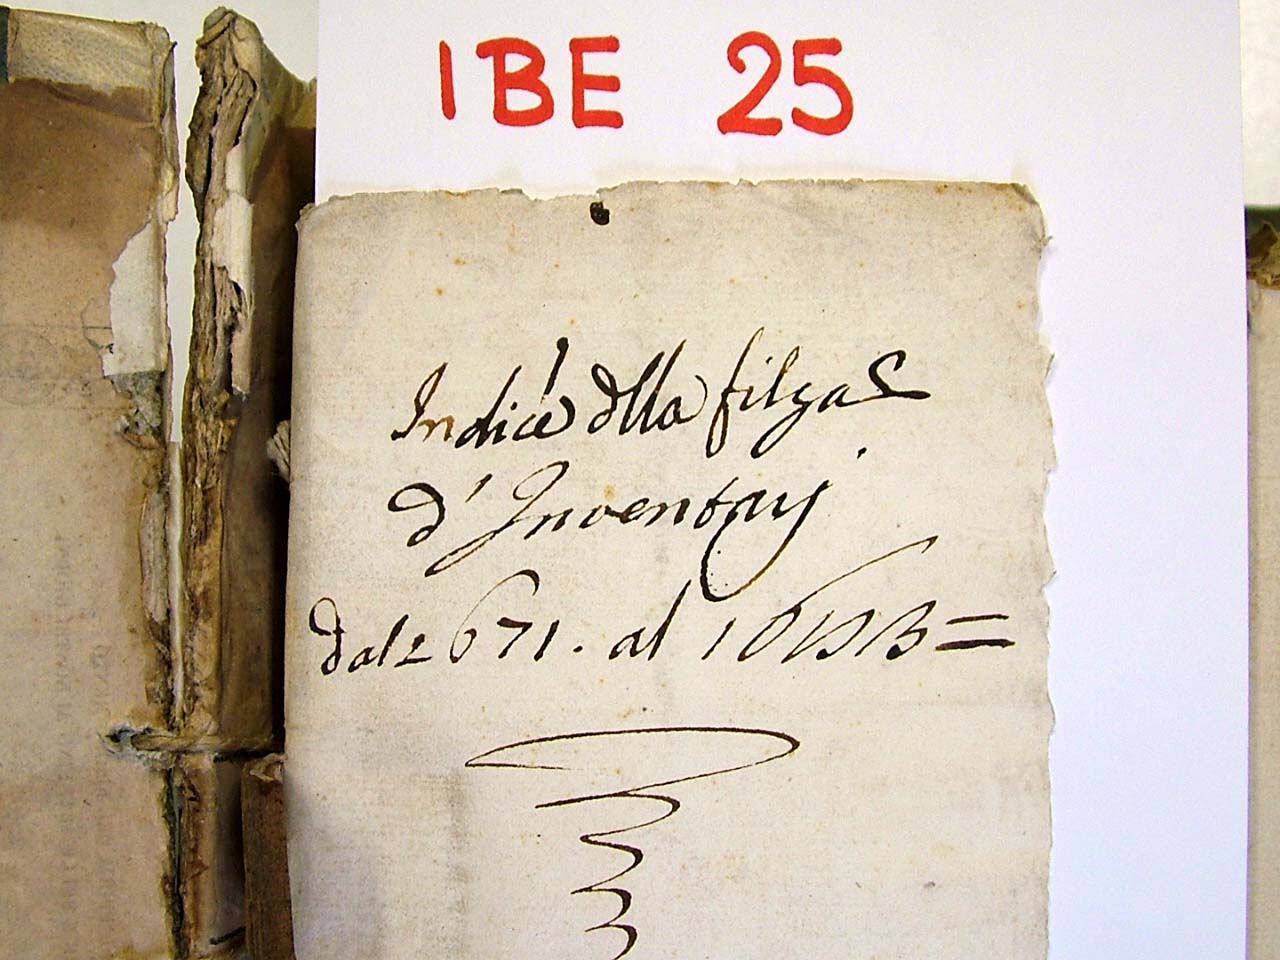 IBE 25
Indice dlla filza
d' Inventarj
dal 1671. al